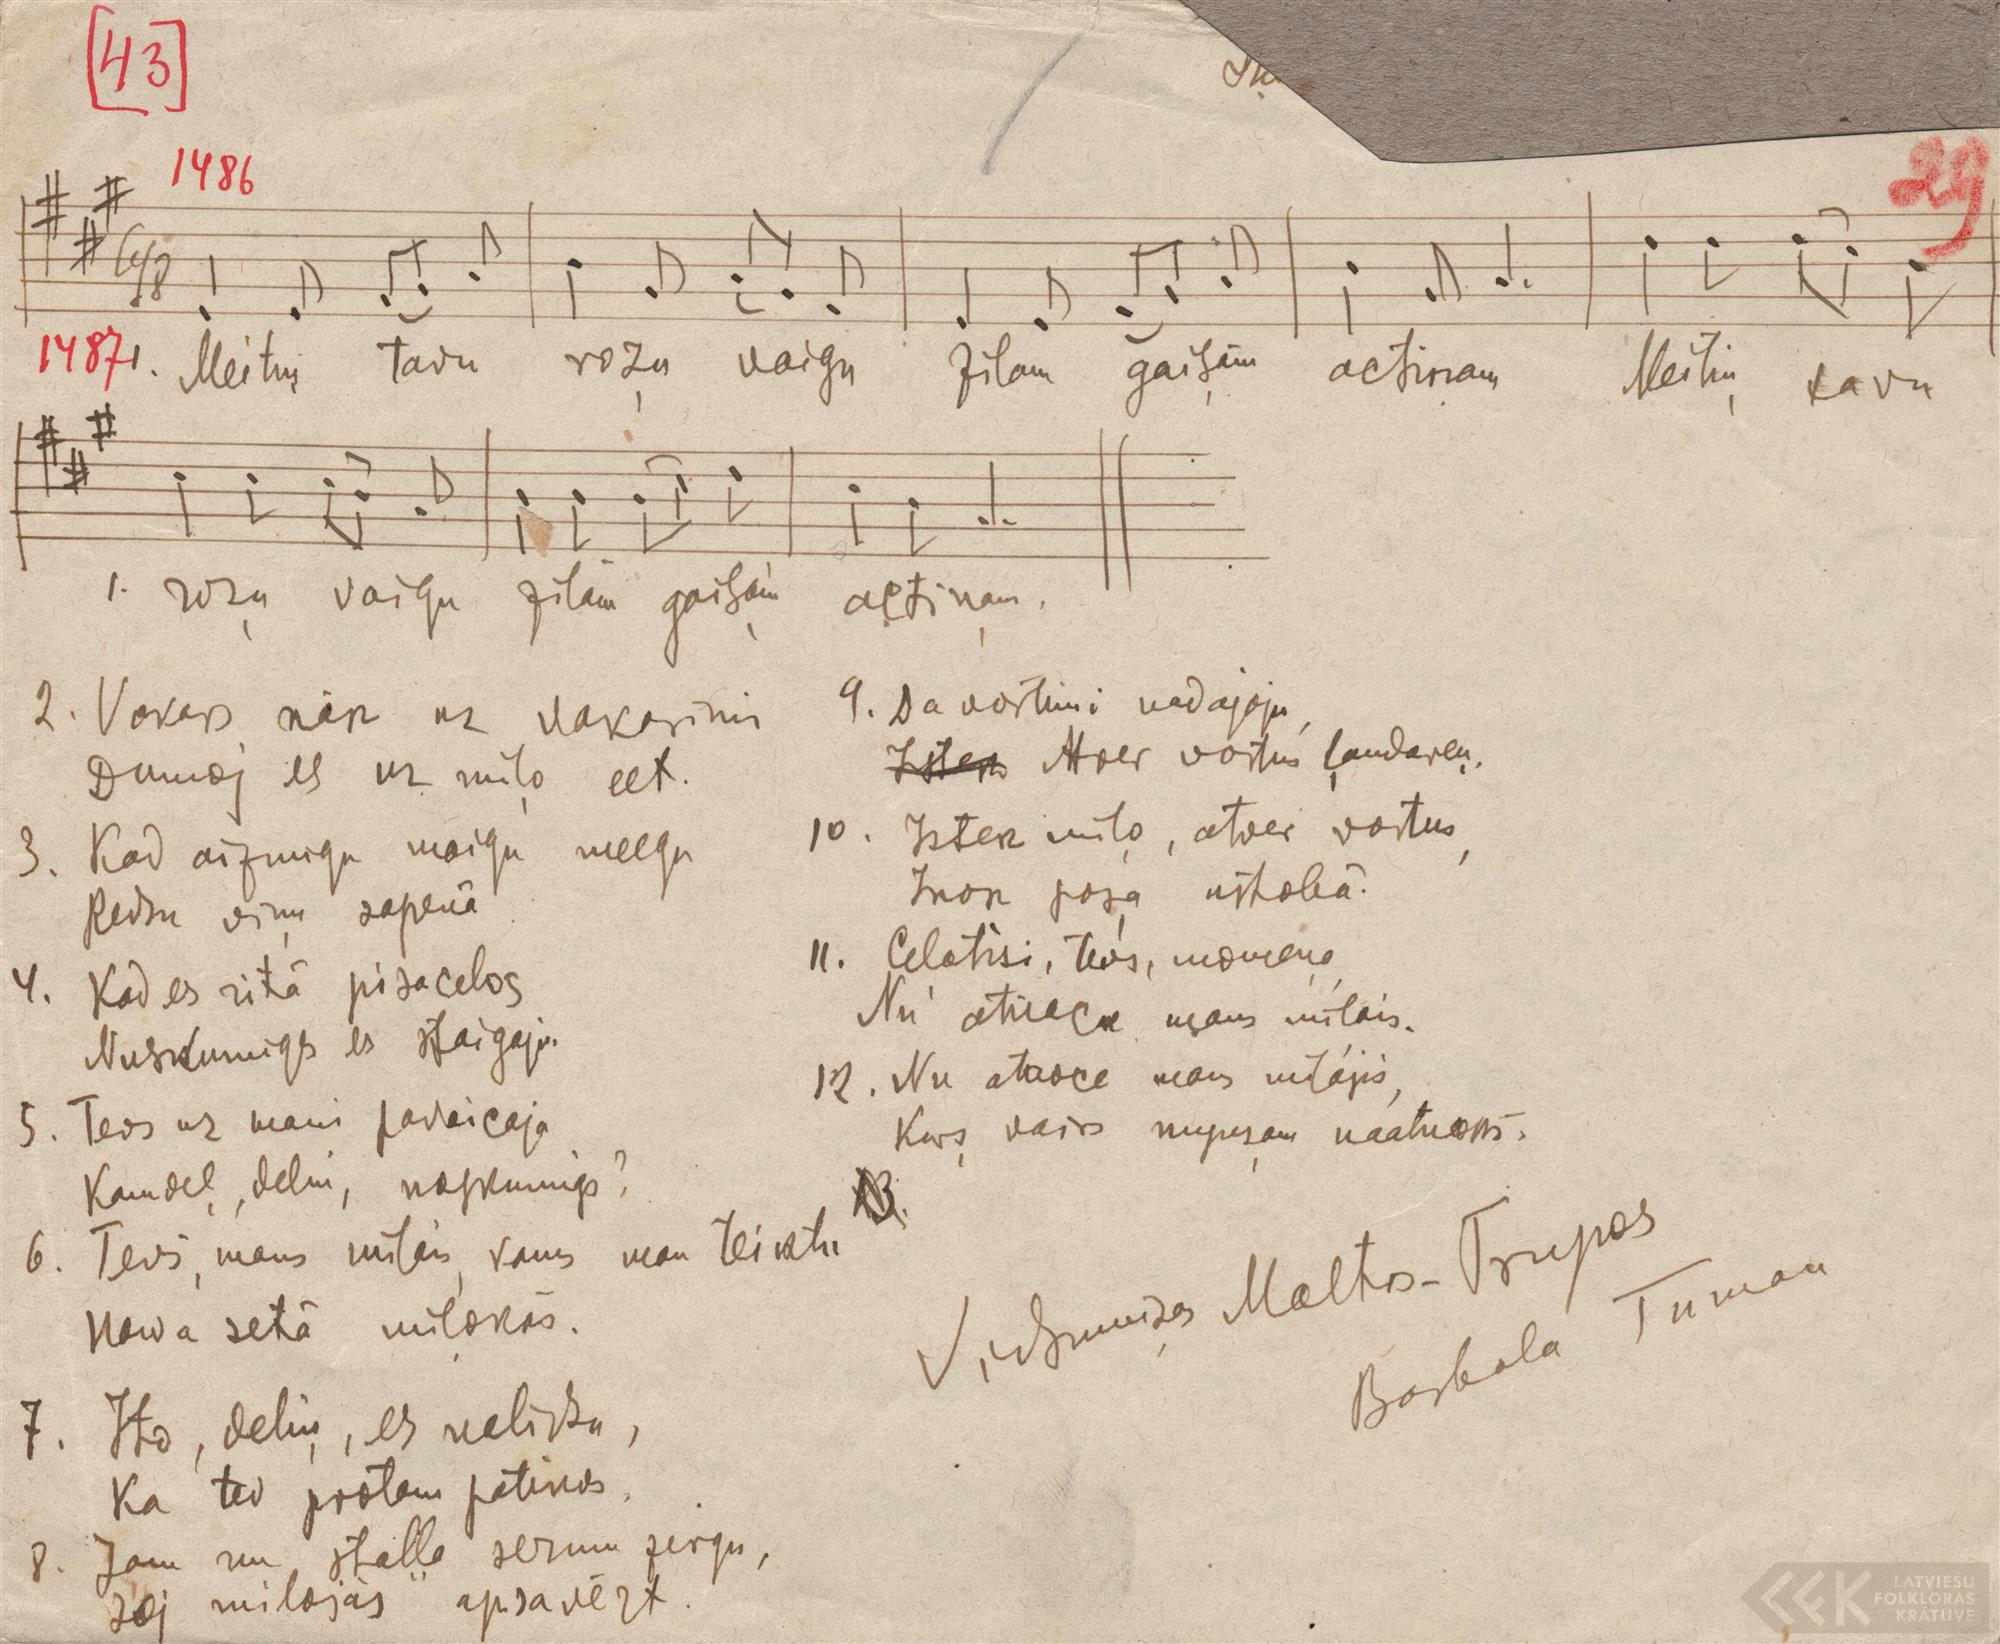 [43]
29
1486
6/8
1487 1. Meitiņ tavu rožu vaigu zilam gaišam actiņam Meitiņ tavu
1. rožu vaigu zilām gaišām actiņam.
2. Vakars nāk uz vakariņi
Dumoj es uz miļo eet.
3. Kad aizmigu maigu meegu
Redzu viņu sapenā
4. Kad es ritā pisacelos
Nuskumigs es staigaju.
5. Tevs uz mani pavaicaja
Kamdeļ, delin, noskumigs?
6. Tevs, mans milais, kams man teiktu
Nowa setā miļakās.
7. Ito, deliņ, es nelidzu,
Ka tev protam patikas.
8. Jam nu staļļa sermu zirgu,
Joj milajās apsavērt.
9. Da vortimi nadajoju,
Atver vortus ļaudaveņ.
10. Iztek miļo, atver vortus,
11. Celatisi, tevs, momeņa,
Nu atnace mans milais.
12. Nu atnace mans milajis,
Kurs vairs naatnaks.
Viļdzmuižas Maltas-Trupos
Borbola Tuman
LATVIEŠU
FOLKLORAS
KRĀTUVE